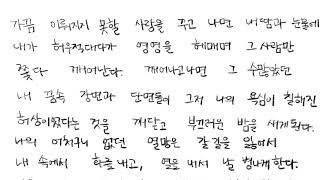 가끔 이뤄지지 못할 사랑을 꾸고 나면 내 땀과 눈물에
내가 허우적대다가 영영을 헤매며 그 사람만
쫓다 깨어난다. 깨어나고나면 그 수많았던
내 꿈속 장면과 단면들이 그저 나의 욕심이 칠해진
허상이었다는 것을 깨닫고 부끄러운 밤을 새게된다.
나의 어처구니 없던 열망은 갈 길을 잃어서
내 속에서 화를 내고, 열을 내서 날 병나게 한다.